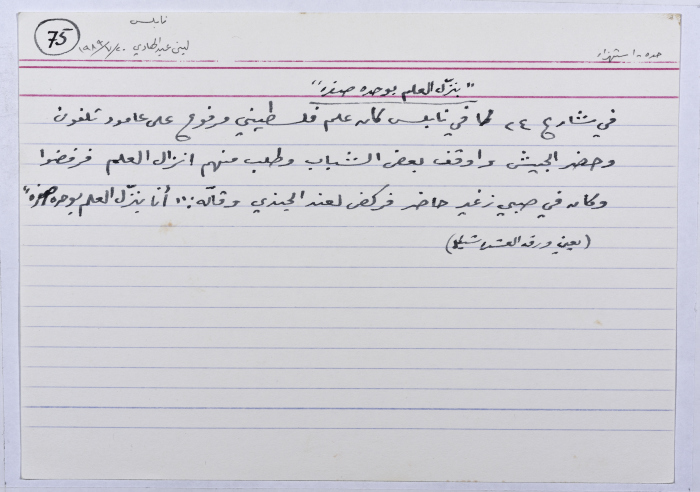 نابلس
75
لبنى عبد الهادي
حدة - استهزاء
"بنزّل العلم بوحده صفره"
في شارع ٢٤ في نابلس كان علم فلسطيني مرفوع على عامود تلفون
وحضر الجيش واوقف بعض الشباب وطلب منهم انزال العلم فرفضوا
وكان في صبي زغير حاضر فركض لعند الجندي وقاله: "أنا بنزّل العلم بوحده صفره"
(يعني ورقة العشرة شيكل)